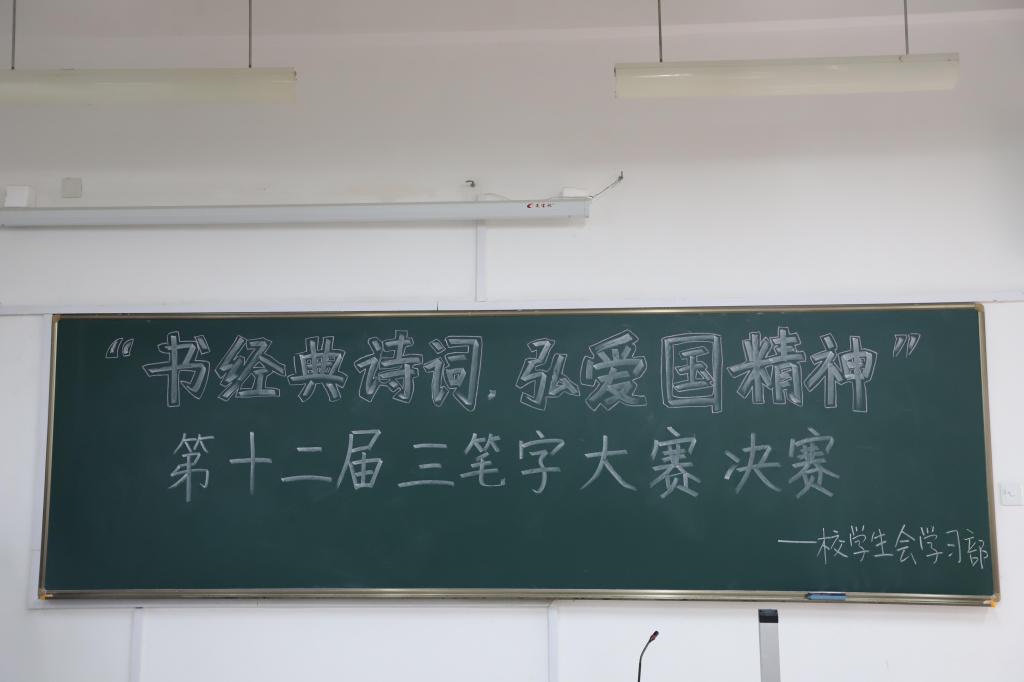 “书经典诗词，弘爱国精神”
第十二届三笔字大赛决赛
——校学生会学习部